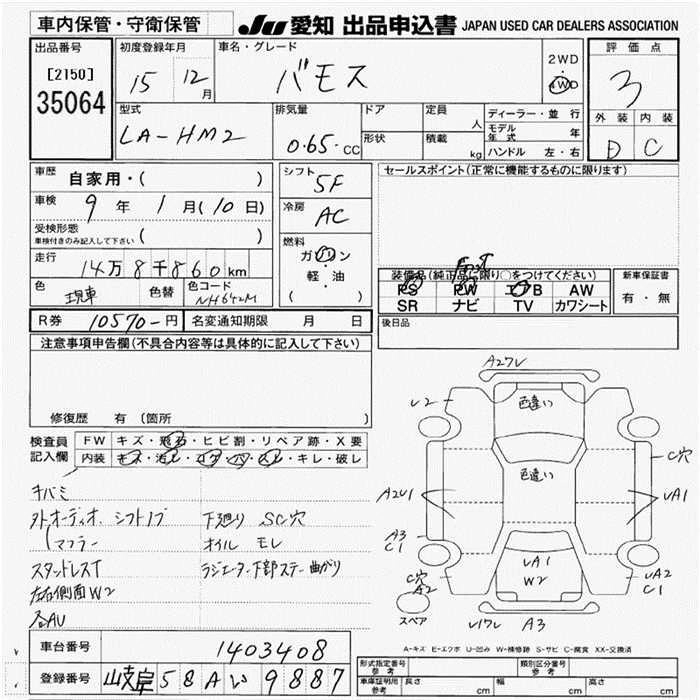 車内保管・守衛保管
JU 愛知 出品申込書 JAPAN USED CAR DEALERS ASSOCIATION
出品番号
[2150]
35064
初度登録年月
15 12月
車名・グレード
バモス
2WD
4WD
評価点
3
外装 内装
D C
型式
LA-HM2
排気量
0.65 cc
ドア
形状
定員 人
積載 kg
ディーラー・並行
モデル年式 年
ハンドル 左・右
車歴 自家用・( )
車検 9年 1月(10日)
受検形態
車検付きのみ記入して下さい ( )
走行 14万8千860km
色 現車 色替 色コード NH642M
シフト 5F
冷房 AC
燃料
ガソリン
・
軽・油
( )
セールスポイント(正常に機能するものに限ります)
装備品(純正品に限り○をつけてください)
PS PW エアB AW
SR ナビ TV カワシート
新車保証書
有・無
R券 10570-円 名変通知期限 月 日
後日品
注意事項申告欄(不具合内容等は具体的に記入して下さい)
修復歴 有 (箇所 )
検査員記入欄
FW キズ・飛石・ヒビ割・リペア跡・X要
内装 キズ・汚レ・コゲ・穴・スレ・キレ・破レ
キバミ
外オーディオ、シフトノブ 下廻り SC穴
マフラー オイル モレ
スタッドレスT ラジエーター下部ステー曲がり
左右側面W2
各AU
A27V
U2
色違い
C穴
色違い
A2U1
UA1
A3
C1
UA1
W2
C穴
A2
UA2
C1
スペア
U17V A3
A-キズ E-エクボ U-凹み W-補修跡 S-サビ C-腐食 XX-交換済
車台番号 1403408
登録番号 岐阜 58 A い 9887
形式指定番号参考
類別区分番号参考
車庫証明用参考 長さ cm 幅 cm 高さ cm